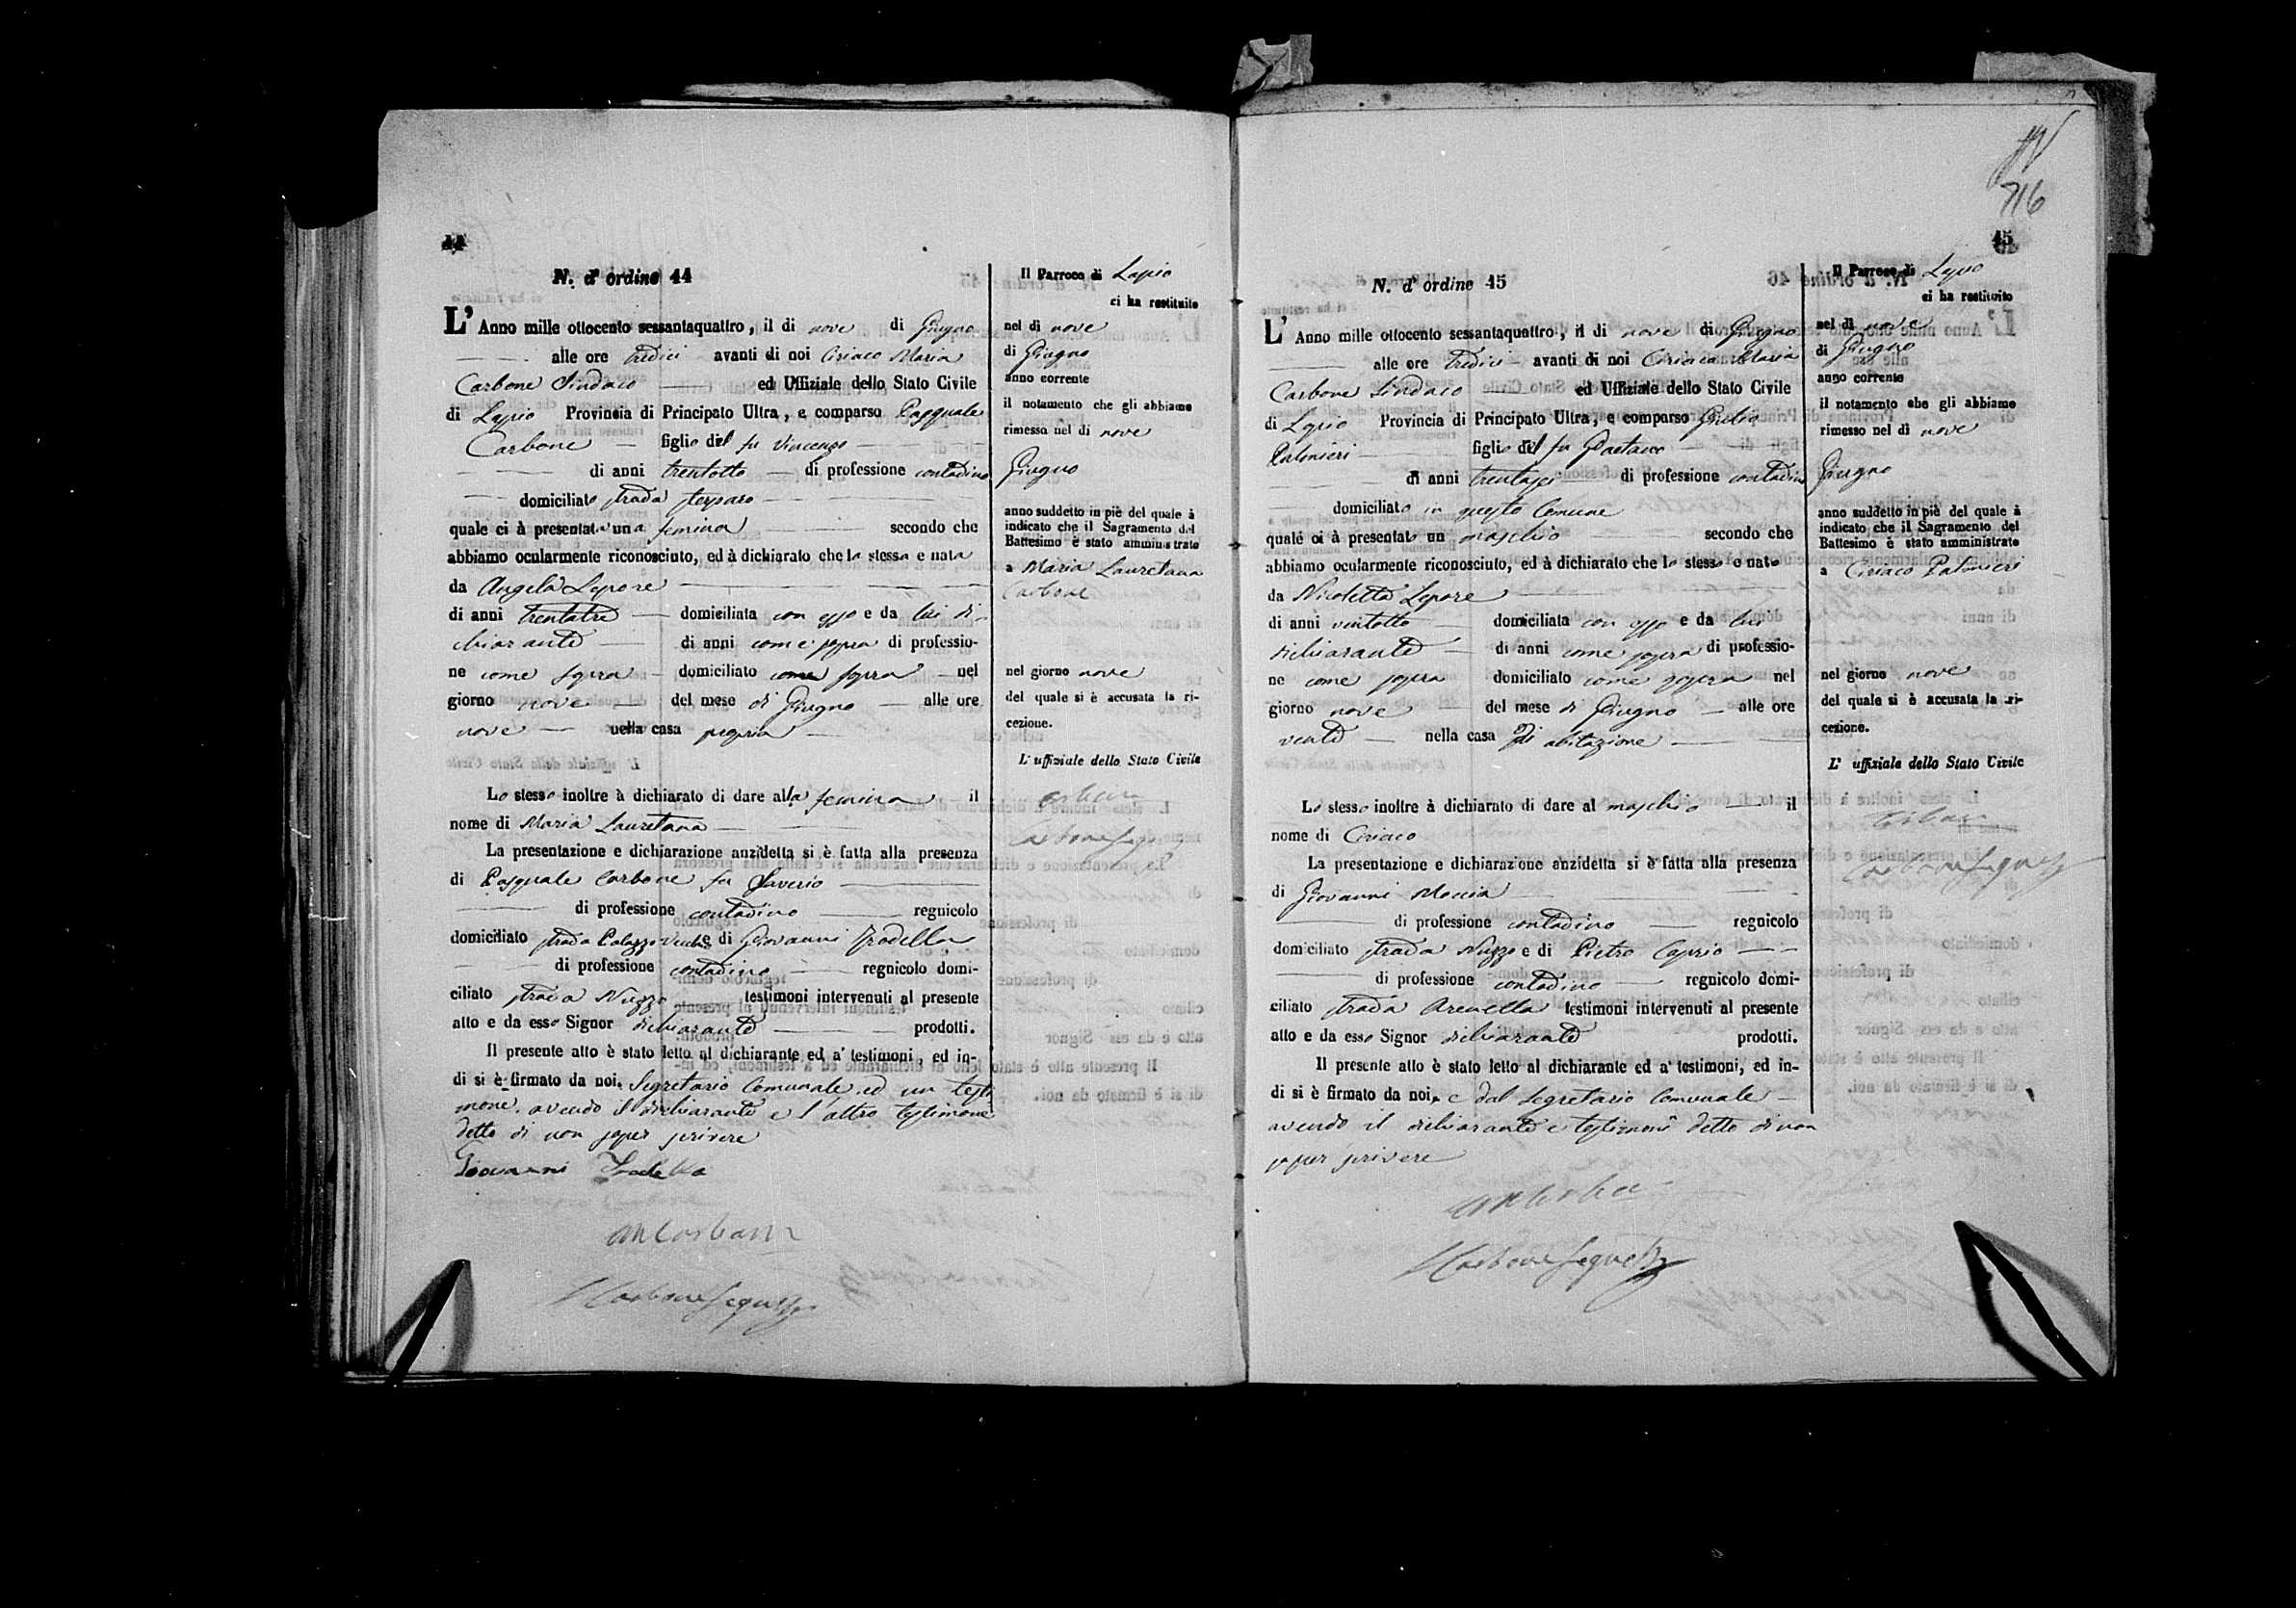 44
N. d' ordine 44
L' Anno mille ottocento sessantaquattro, il di nove di Giugno
alle ore tredici avanti di noi Ciriaco Maria
Carbone Sindaco ed Uffiziale dello Stato Civile
di Lapio Provincia di Principato Ultra, e comparso Pasquale
Carbone figlio del fu Vincenzo
di anni trentotto di professione contadino
domiciliato strada
quale ci à presentata una femina secondo che
abbiamo ocularmente riconosciuto, ed à dichiarato che la stessa e nata
da Angela Lepore
di anni trentatre domiciliata con esso e da lui di-
chiarante di anni come sopra di professio-
ne come sopra domiciliato come sopra nel
giorno nove del mese di Giugno alle ore
nove nella casa propria
Lo stesso inoltre à dichiarato di dare alla femina il
nome di Maria Lauretana
La presentazione e dichiarazione anzidetta si è fatta alla presenza
di Pasquale Carbone fu Saverio
di professione contadino regnicolo
domiciliato strada Palazzo Vecchio e di Giovanni Trodella
di professione contadino regnicolo domi-
ciliato strada Nuzzo testimoni intervenuti al presente
atto e da esso Signor dichiarante prodotti.
Il presente atto è stato letto al dichiarante ed a' testimoni, ed in-
di si è firmato da noi, Segretario Comunale, ed un testi
mone, avendo il dichiarante e l'altro testimone
detto di non saper scrivere
Giovanni Trodella
Carbone
Carbone
Il Parroco di Lapio
ci ha restituito
nel di nove
di Giugno
anno corrente
il notamento che gli abbiamo
rimesso nel di nove
Giugno
anno suddetto in piè del quale à
indicato che il Sagramento del
Battesimo è stato amministrato
a Maria Lauretana
Carbone
nel giorno nove
del quale si è accusata la ri-
cezione.
L' uffiziale dello Stato Civile
Carbone
716
45
N. d' ordine 45
L' Anno mille ottocento sessantaquattro, il di nove di Giugno
alle ore tredici avanti di noi Ciriaco Maria
Carbone Sindaco ed Uffiziale dello Stato Civile
di Lapio Provincia di Principato Ultra, e comparso Giulio
Palmieri figlio del fu Gaetano
di anni trentasei di professione contadino
domiciliato in questo Comune
quale ci à presentato un maschio secondo che
abbiamo ocularmente riconosciuto, ed à dichiarato che lo stesso e nato
da Nicoletta Lepore
di anni ventotto domiciliata con esso e da lui
dichiarante di anni come sopra di professio-
ne come sopra domiciliato come sopra nel
giorno nove del mese di Giugno alle ore
venti nella casa di abitazione
Lo stesso inoltre à dichiarato di dare al maschio il
nome di Ciriaco
La presentazione e dichiarazione anzidetta si è fatta alla presenza
di Giovanni Moccia
di professione contadino regnicolo
domiciliato strada Nuzzo e di Pietro Caprio
di professione contadino regnicolo domi-
ciliato strada Arenella testimoni intervenuti al presente
atto e da esso Signor dichiarante prodotti.
Il presente atto è stato letto al dichiarante ed a' testimoni, ed in-
di si è firmato da noi, e dal Segretario Comunale
avendo il dichiarante e testimoni detto di non
saper scrivere
Carbone
Il Parroco di Lapio
ci ha restituito
nel di nove
di Giugno
anno corrente
il notamento che gli abbiamo
rimesso nel di nove
Giugno
anno suddetto in piè del quale à
indicato che il Sagramento del
Battesimo è stato amministrato
a Ciriaco Palmieri
nel giorno nove
del quale si è accusata la ri-
cezione.
L' uffiziale dello Stato Civile
Carbone